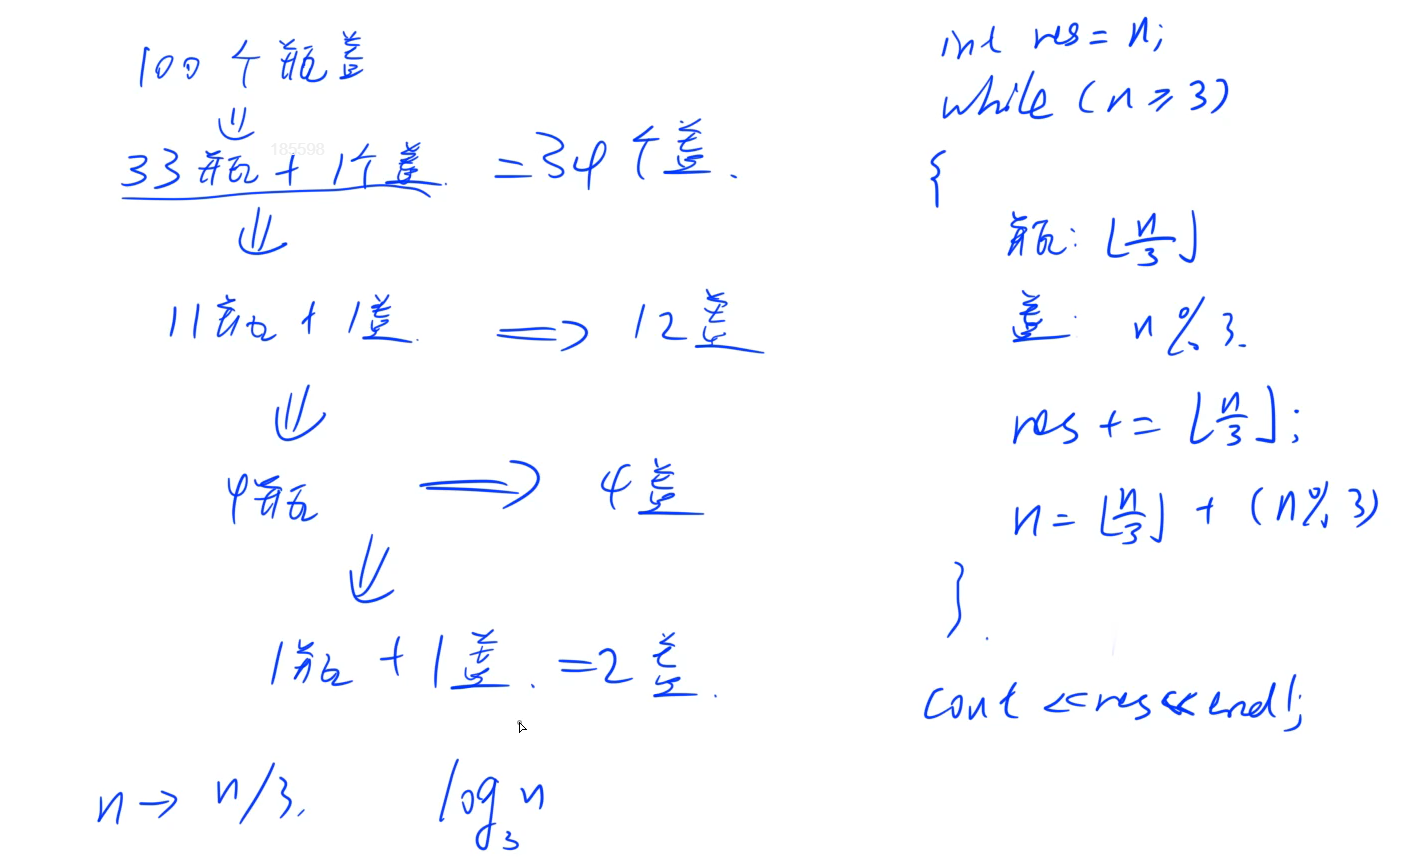 100个瓶盖
⇓
33瓶 + 1个盖 = 34个盖.
185598
⇓
11瓶 + 1盖. ⟹ 12盖
⇓
4瓶 ⟹ 4盖
⇓
1瓶 + 1盖. = 2盖.
n → n/3. log₃n
int res = n;
while (n ≥ 3)
{
瓶: ⌊n/3⌋
盖: n % 3.
res += ⌊n/3⌋;
n = ⌊n/3⌋ + (n % 3)
}.
cout << res << endl;